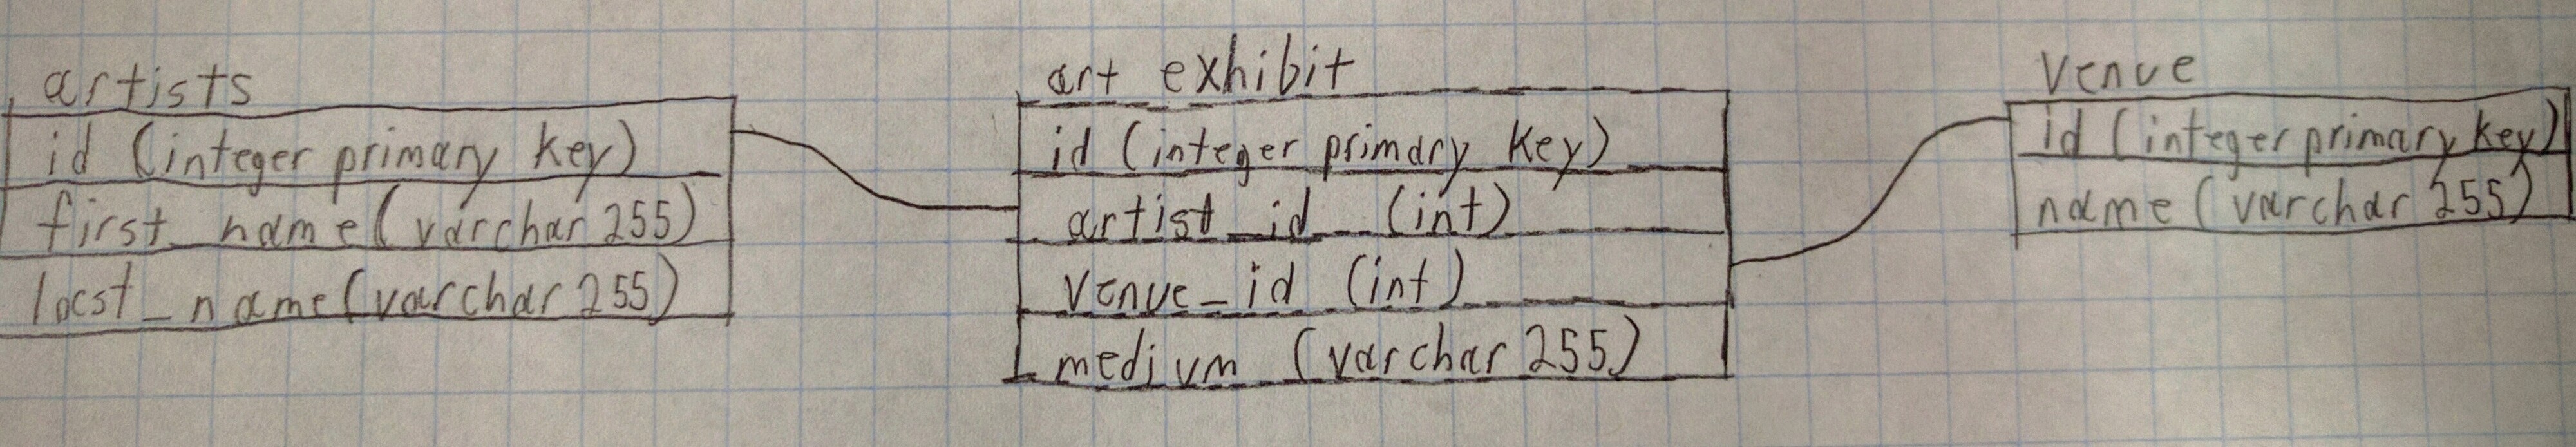 artists
id (integer primary key)
first_name (varchar 255)
last_name (varchar 255)
art exhibit
id (integer primary key)
artist_id (int)
venue_id (int)
medium (varchar 255)
venue
id (integer primary key)
name (varchar 255)